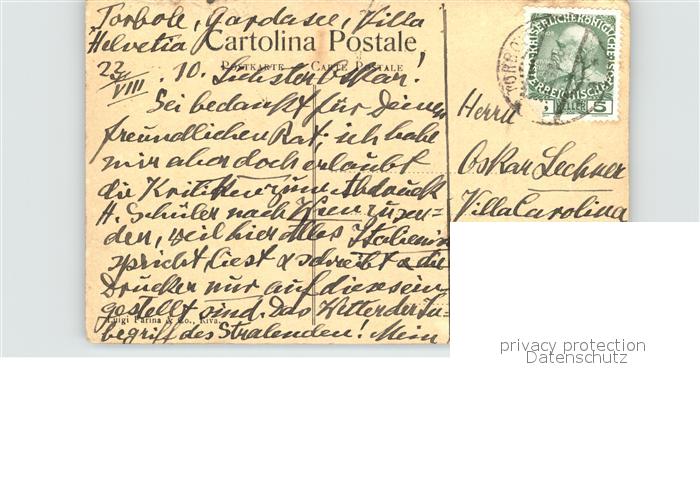 Torbole, Gardasee, Villa
Helvetia
Cartolina Postale
POSTKARTE — CARTE POSTALE
23/VIII. 10. Liebster Oskar!
Sei bedankt für Deinen
freundlichen Rat; ich habe
mir aber doch erlaubt
die Kritik zum Abdruck
H. Schüler nach Wien zu sen-
den, weil hier alles Italienisch
spricht, liest & schreibt & die
Drucker nur auf dieses ein-
gestellt sind. Das Wetter der In-
begriff des Stralenden! Mein
Luigi Farina & Co., Riva.
KAISERLICHE KÖNIGLICHE
ÖSTERREICHISCHE
HELLER 5
TORBO
Herrn
Oskar Lechner
Villa Carolina
privacy protection
Datenschutz